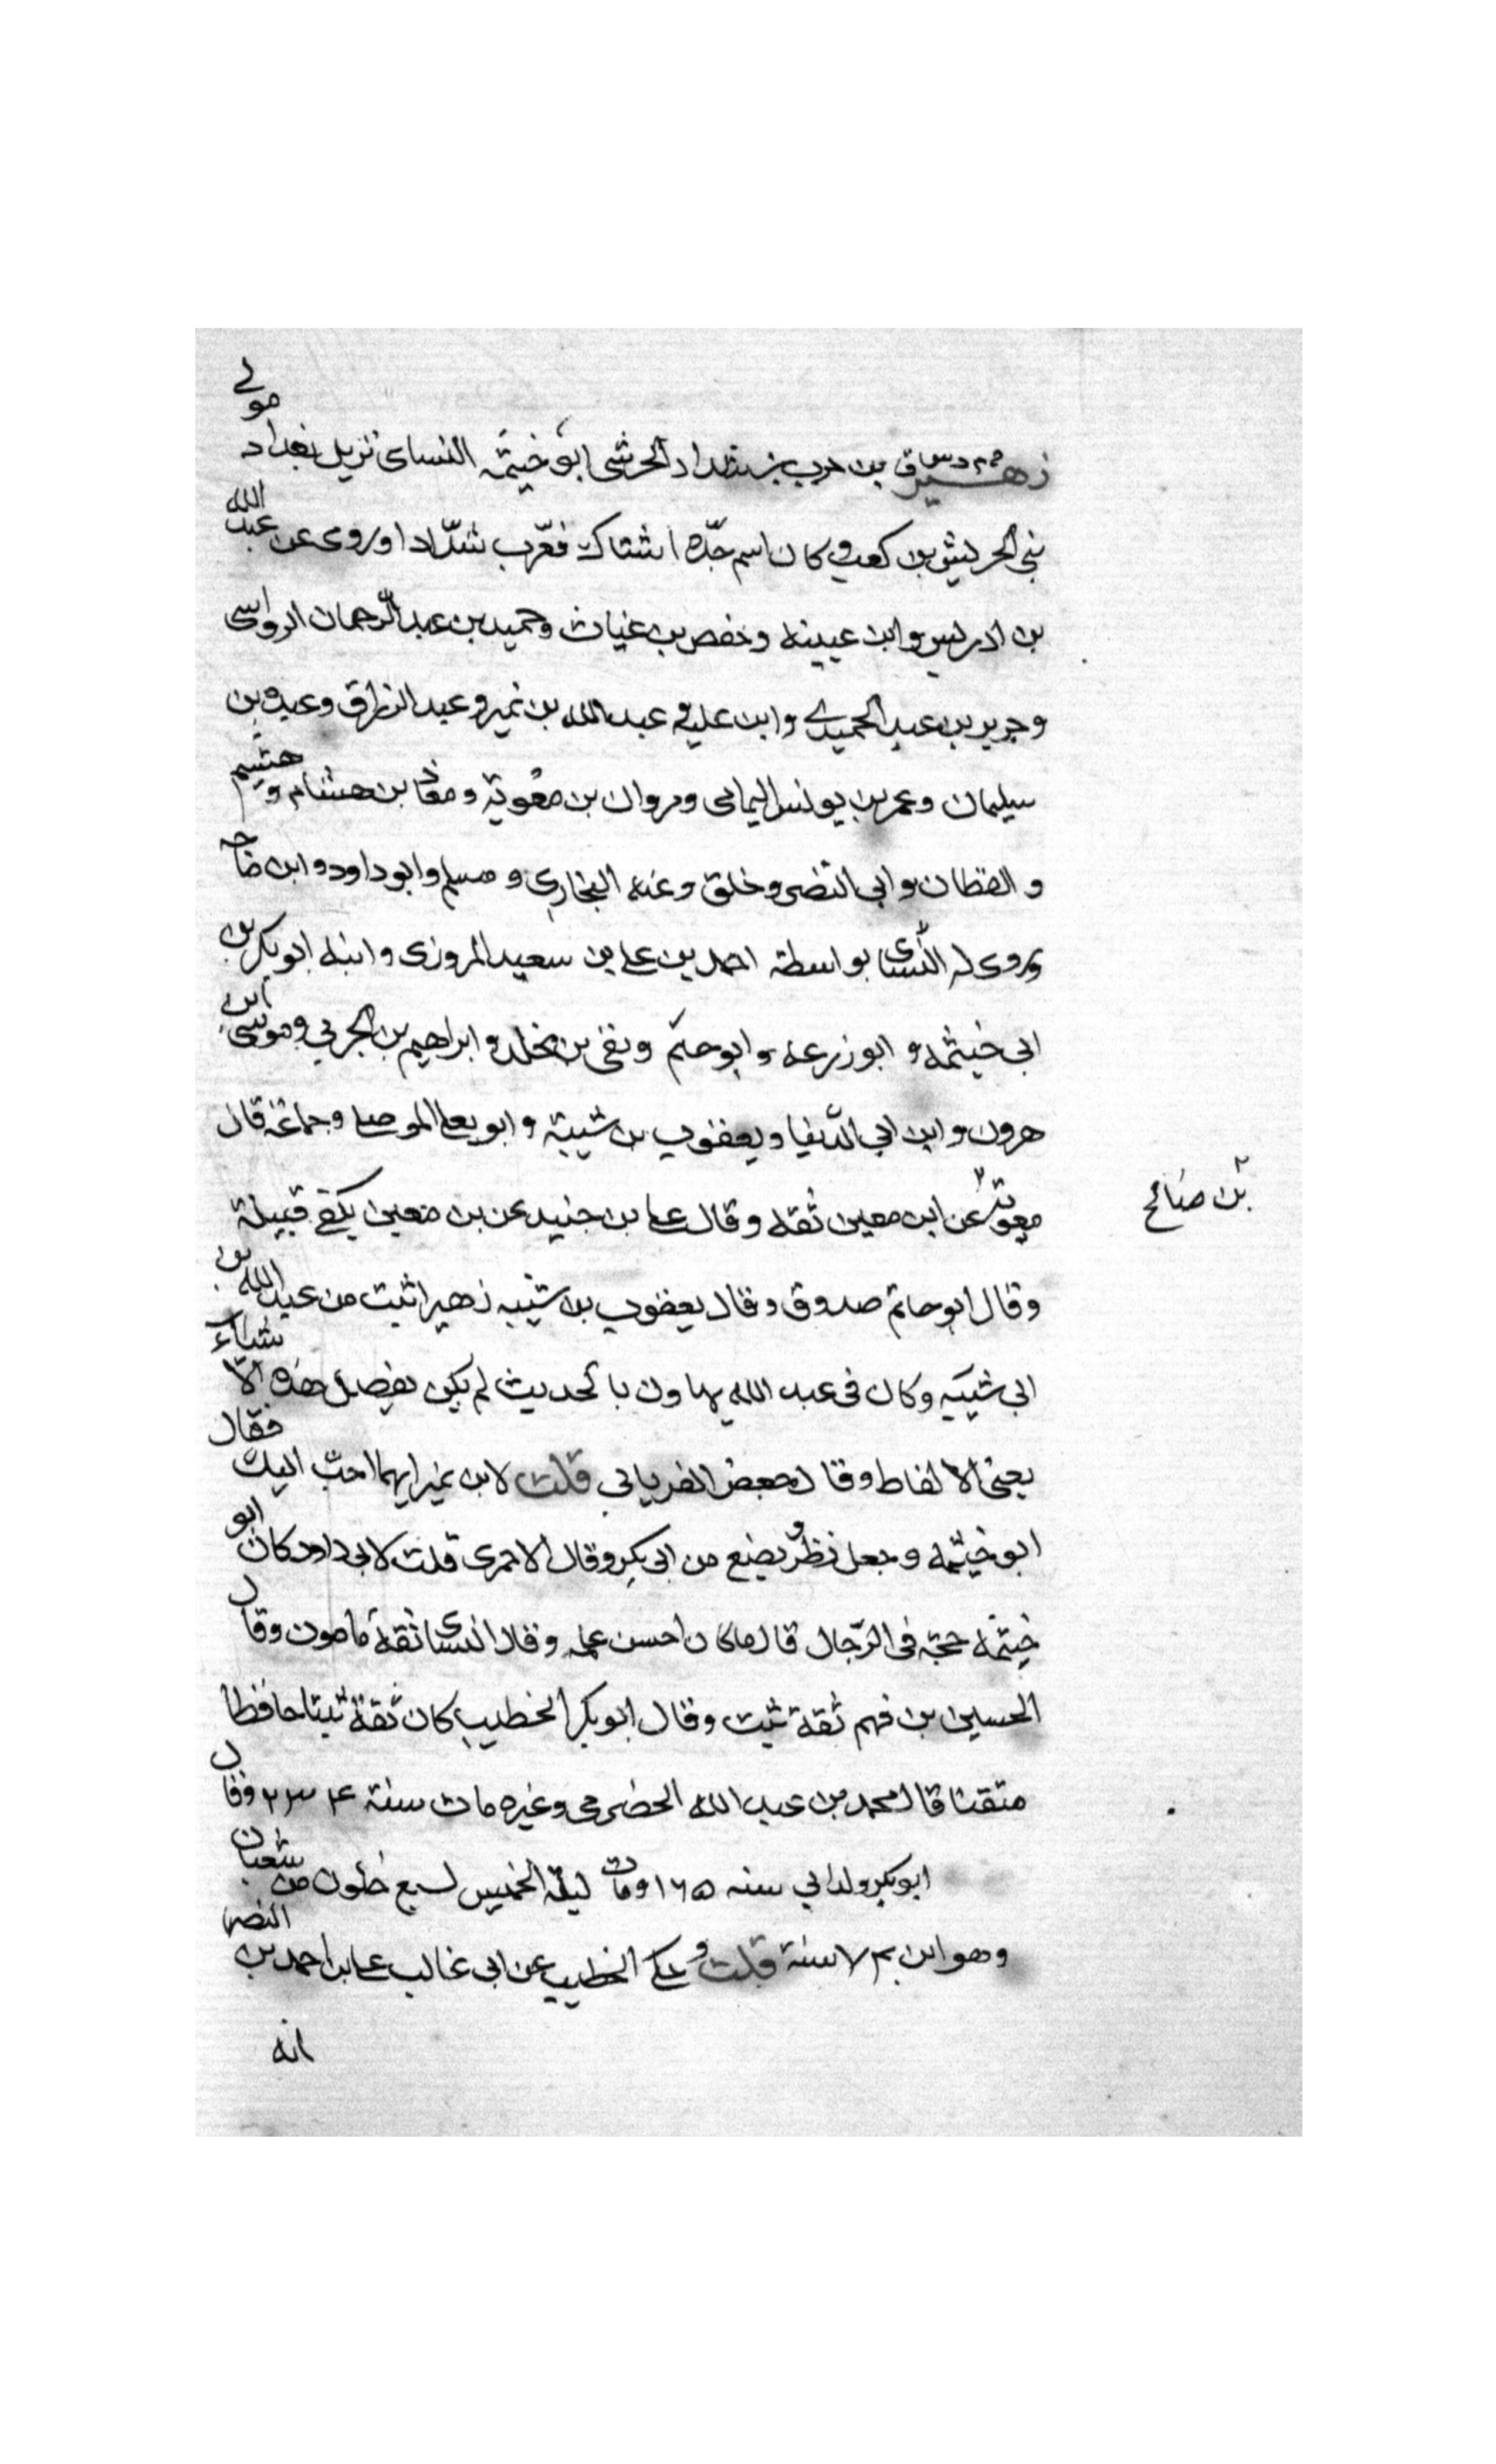 زهير خ م د س ق بن حرب بن شداد الحرشى ابو خيثمه النساى نزيل بغداد مولے
بنى الحريش بن كعب و كان اسم جدّه اشتاك فعرّب شدّادا وروى عن عبد الله
بن ادريس وابن عيينه وحفص بن غياث وحميد بن عبد الرّحمان الرواسى
وجرير بن عبد الحميدے وابن علية و عبد الله بن نمير و عبد الرزاق وعبدة بن
سليمان وعمر بن يونس اليمامى ومروان بن معوية ومعاذ بن هشام و هشيم
و القطان و ابى النضر وخلق وعنه البخارى و مسلم وابو داود و ابن ماجه
وروى له النّسائى بواسطة احمد بن على بن سعيد المروزى وابنه ابو بكر بن
ابى خيثمه و ابو زرعه وابو حاتم وبقى بن مخلد و ابراهيم بن الحربي و موسى ابن
هرون وابن ابى الدّنيا ويعقوب بن شيبة و ابو يعلى الموصلى وجماعة قال
معوية عن ابن معين ثقه وقال على بن جنيد عن بن معين يكفى قبيلة
بن صالح
وقال ابو حاتم صدوق وقال يعقوب بن شيبه زهير اثبت من عبد الله بن
ابى شيبه وكان فى عبد الله تهاون بالحديث لم يكن يفصل هذه الاشياء
يعنى الالفاظ وقال جعفر الفريابى قلت لابن نمير ايهما احبّ اليك فقال
ابو خيثمه وجعل نظرو يضع من ابى بكر وقال الاجرى قلت لابى داود كان ابو
خيثمه حجّة فى الرّجال قال ما كان احسن علمه وقال النسائى ثقة مامون وقال
الحسين بن فهم ثقة ثبت وقال ابو بكر الخطيب كان ثقة ثبتا حافظا
متقنا قال محمد بن عبد الله الحضرمى وغيره مات سنة ٢٣٤ وقال
ابو بكر ولد ابى سنه ١٦٥ ومات ليلة الخميس لسبع خلون من شعبان
وهو ابن ٧٤ سنة قلت و حكى الخطيب عن ابى غالب على بن احمد بن النضر
انه